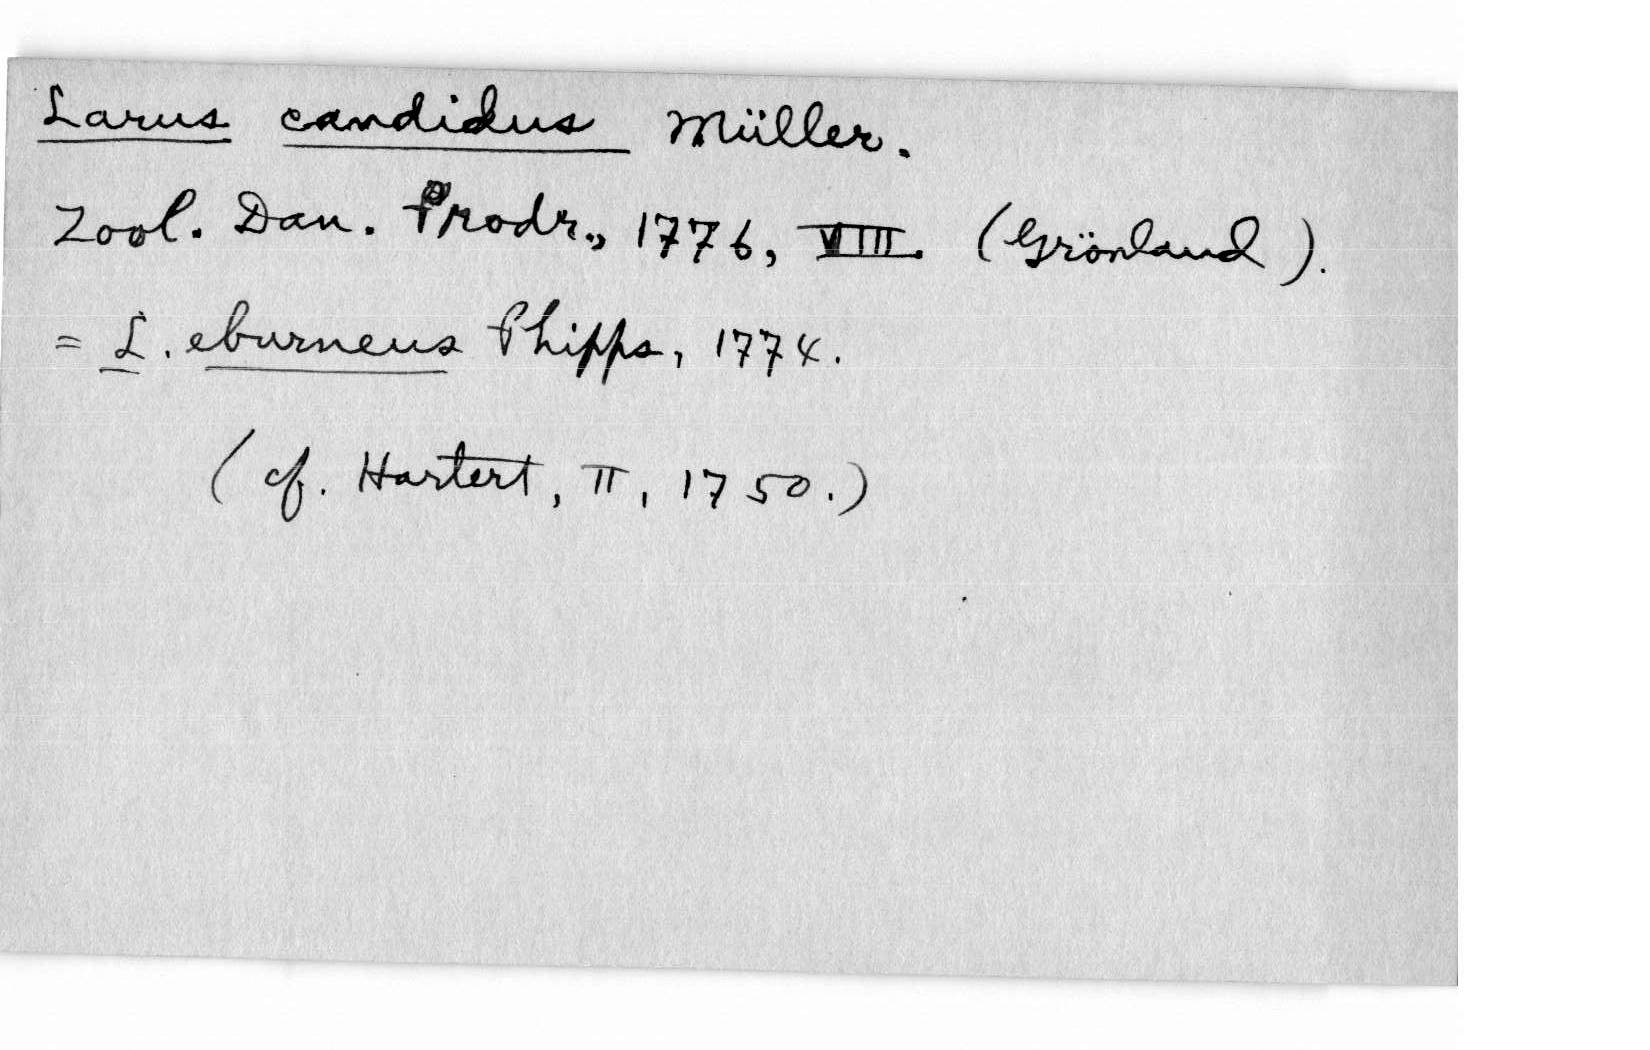 Larus candidus Müller.
Zool. Dan. Prodr., 1776, VIII. (Grönland).
= L. eburneus Phipps, 1774.
(cf. Hartert, II, 1750.)